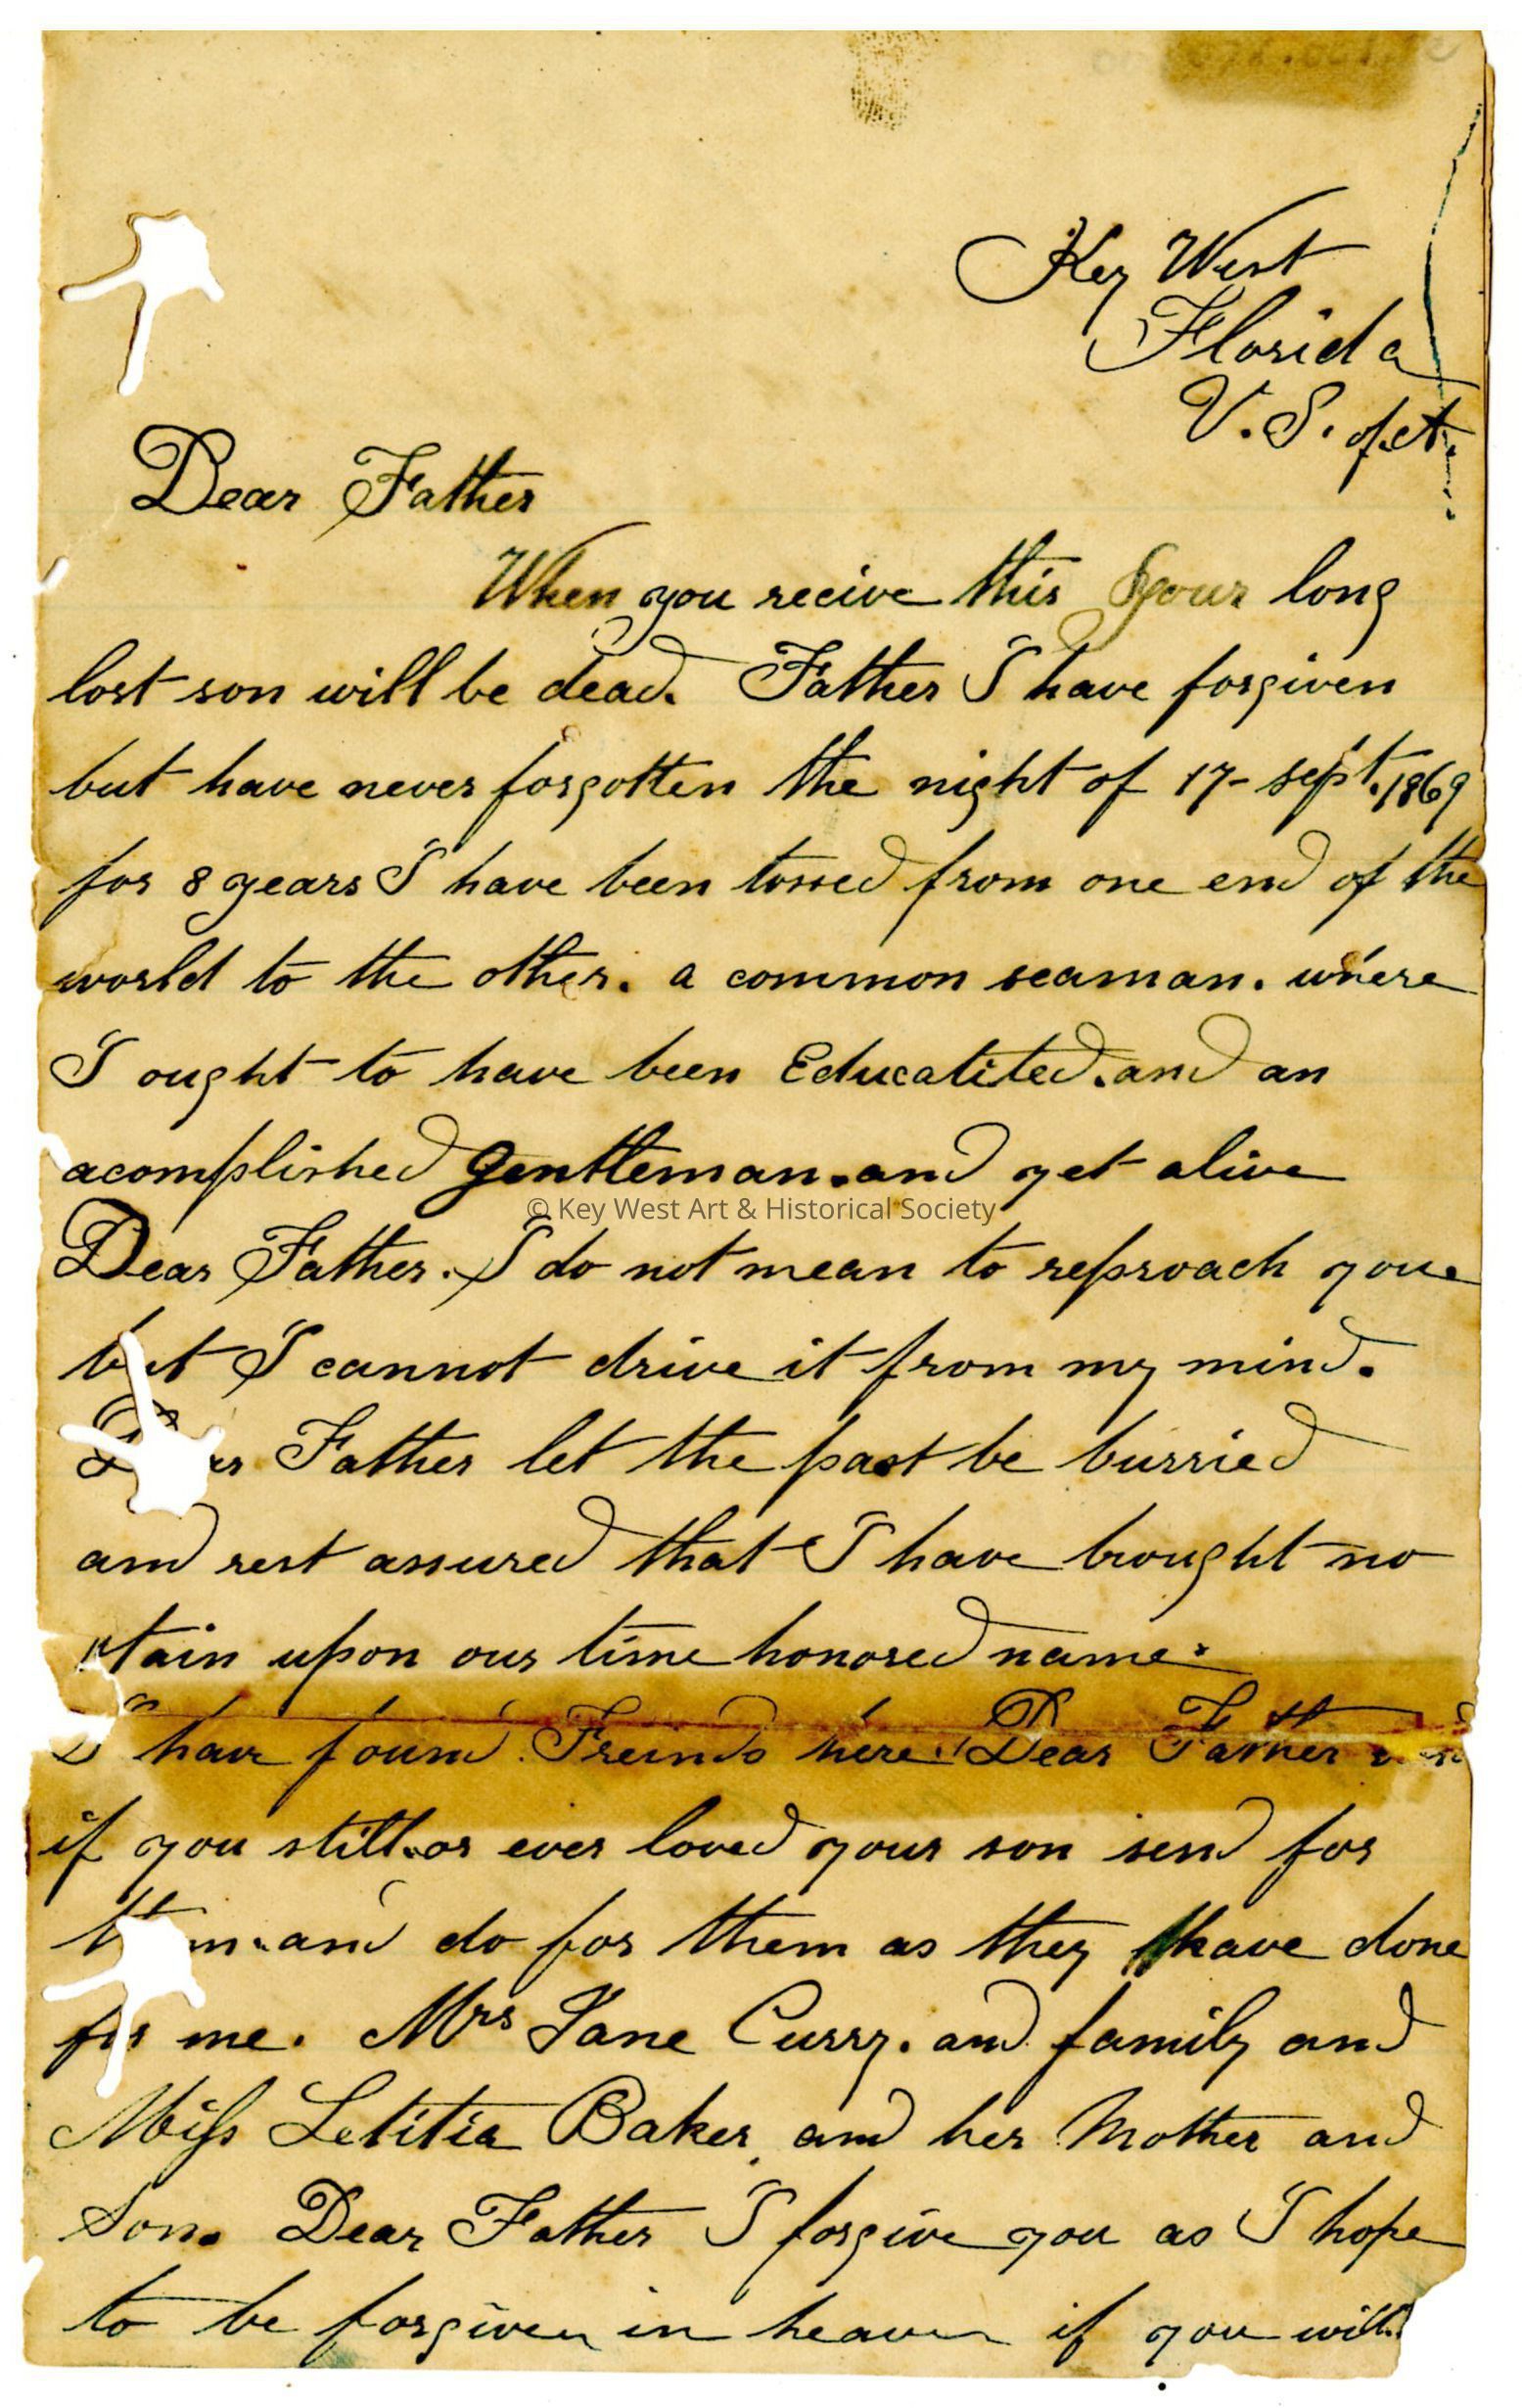 Key West
Florida
U.S. of A.
Dear Father
When you recive this your long
lost son will be dead. Father I have forgiven
but have never forgotten the night of 17- sept. 1869
for 8 years I have been tossed from one end of the
world to the other. a common seaman. where
I ought to have been Educatited. and an
acomplished Gentleman. and yet alive
© Key West Art & Historical Society
Dear Father. I do not mean to reproach you
but I cannot drive it from my mind.
Dear Father let the past be burried
and rest assured that I have brought no
stain upon our time honored name.
I have found Freinds here. Dear Father
if you still. or ever loved your son send for
them. and do for them as they have done
for me. Mrs Jane Curry. and family and
Miss Letitia Baker, and her Mother and
Son. Dear Father I forgive you as I hope
to be forgiven in heaven if you will.